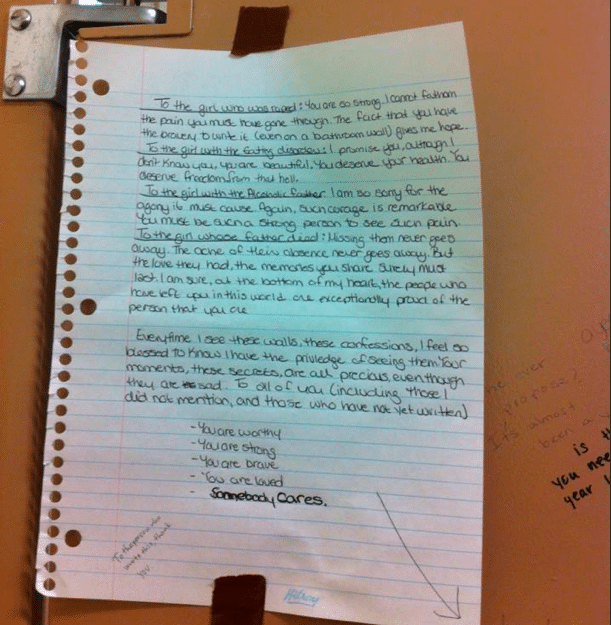 To the girl who was raped: You are so strong. I cannot fathom
the pain you must have gone through. The fact that you have
the bravery to write it (even on a bathroom wall) gives me hope.
To the girl with the Eating disorder: I promise you, although I
don't know you, you are beautiful. You deserve your health. You
deserve freedom from that hell.
To the girl with the Alcoholic father: I am so sorry for the
agony it must cause. Again, such courage is remarkable.
You must be such a strong person to see such pain.
To the girl whose father died: Missing them never goes
away. The ache of their absence never goes away. But
the love they had, the memories you share surely must
last. I am sure, at the bottom of my heart, the people who
have left you in this world are exceptionally proud of the
person that you are
Everytime I see these walls, these confessions, I feel so
blessed to know I have the priviledge of seeing them. Your
moments, these secrets, are all precious, even though
they are sad. To all of you (including those I
did not mention, and those who have not yet written)
- You are worthy
- You are strong
- You are brave
- You are loved
- Somebody Cares.
To the person who
wrote this, thank
you
propose?
It's almost
been a
is th
you nee
year